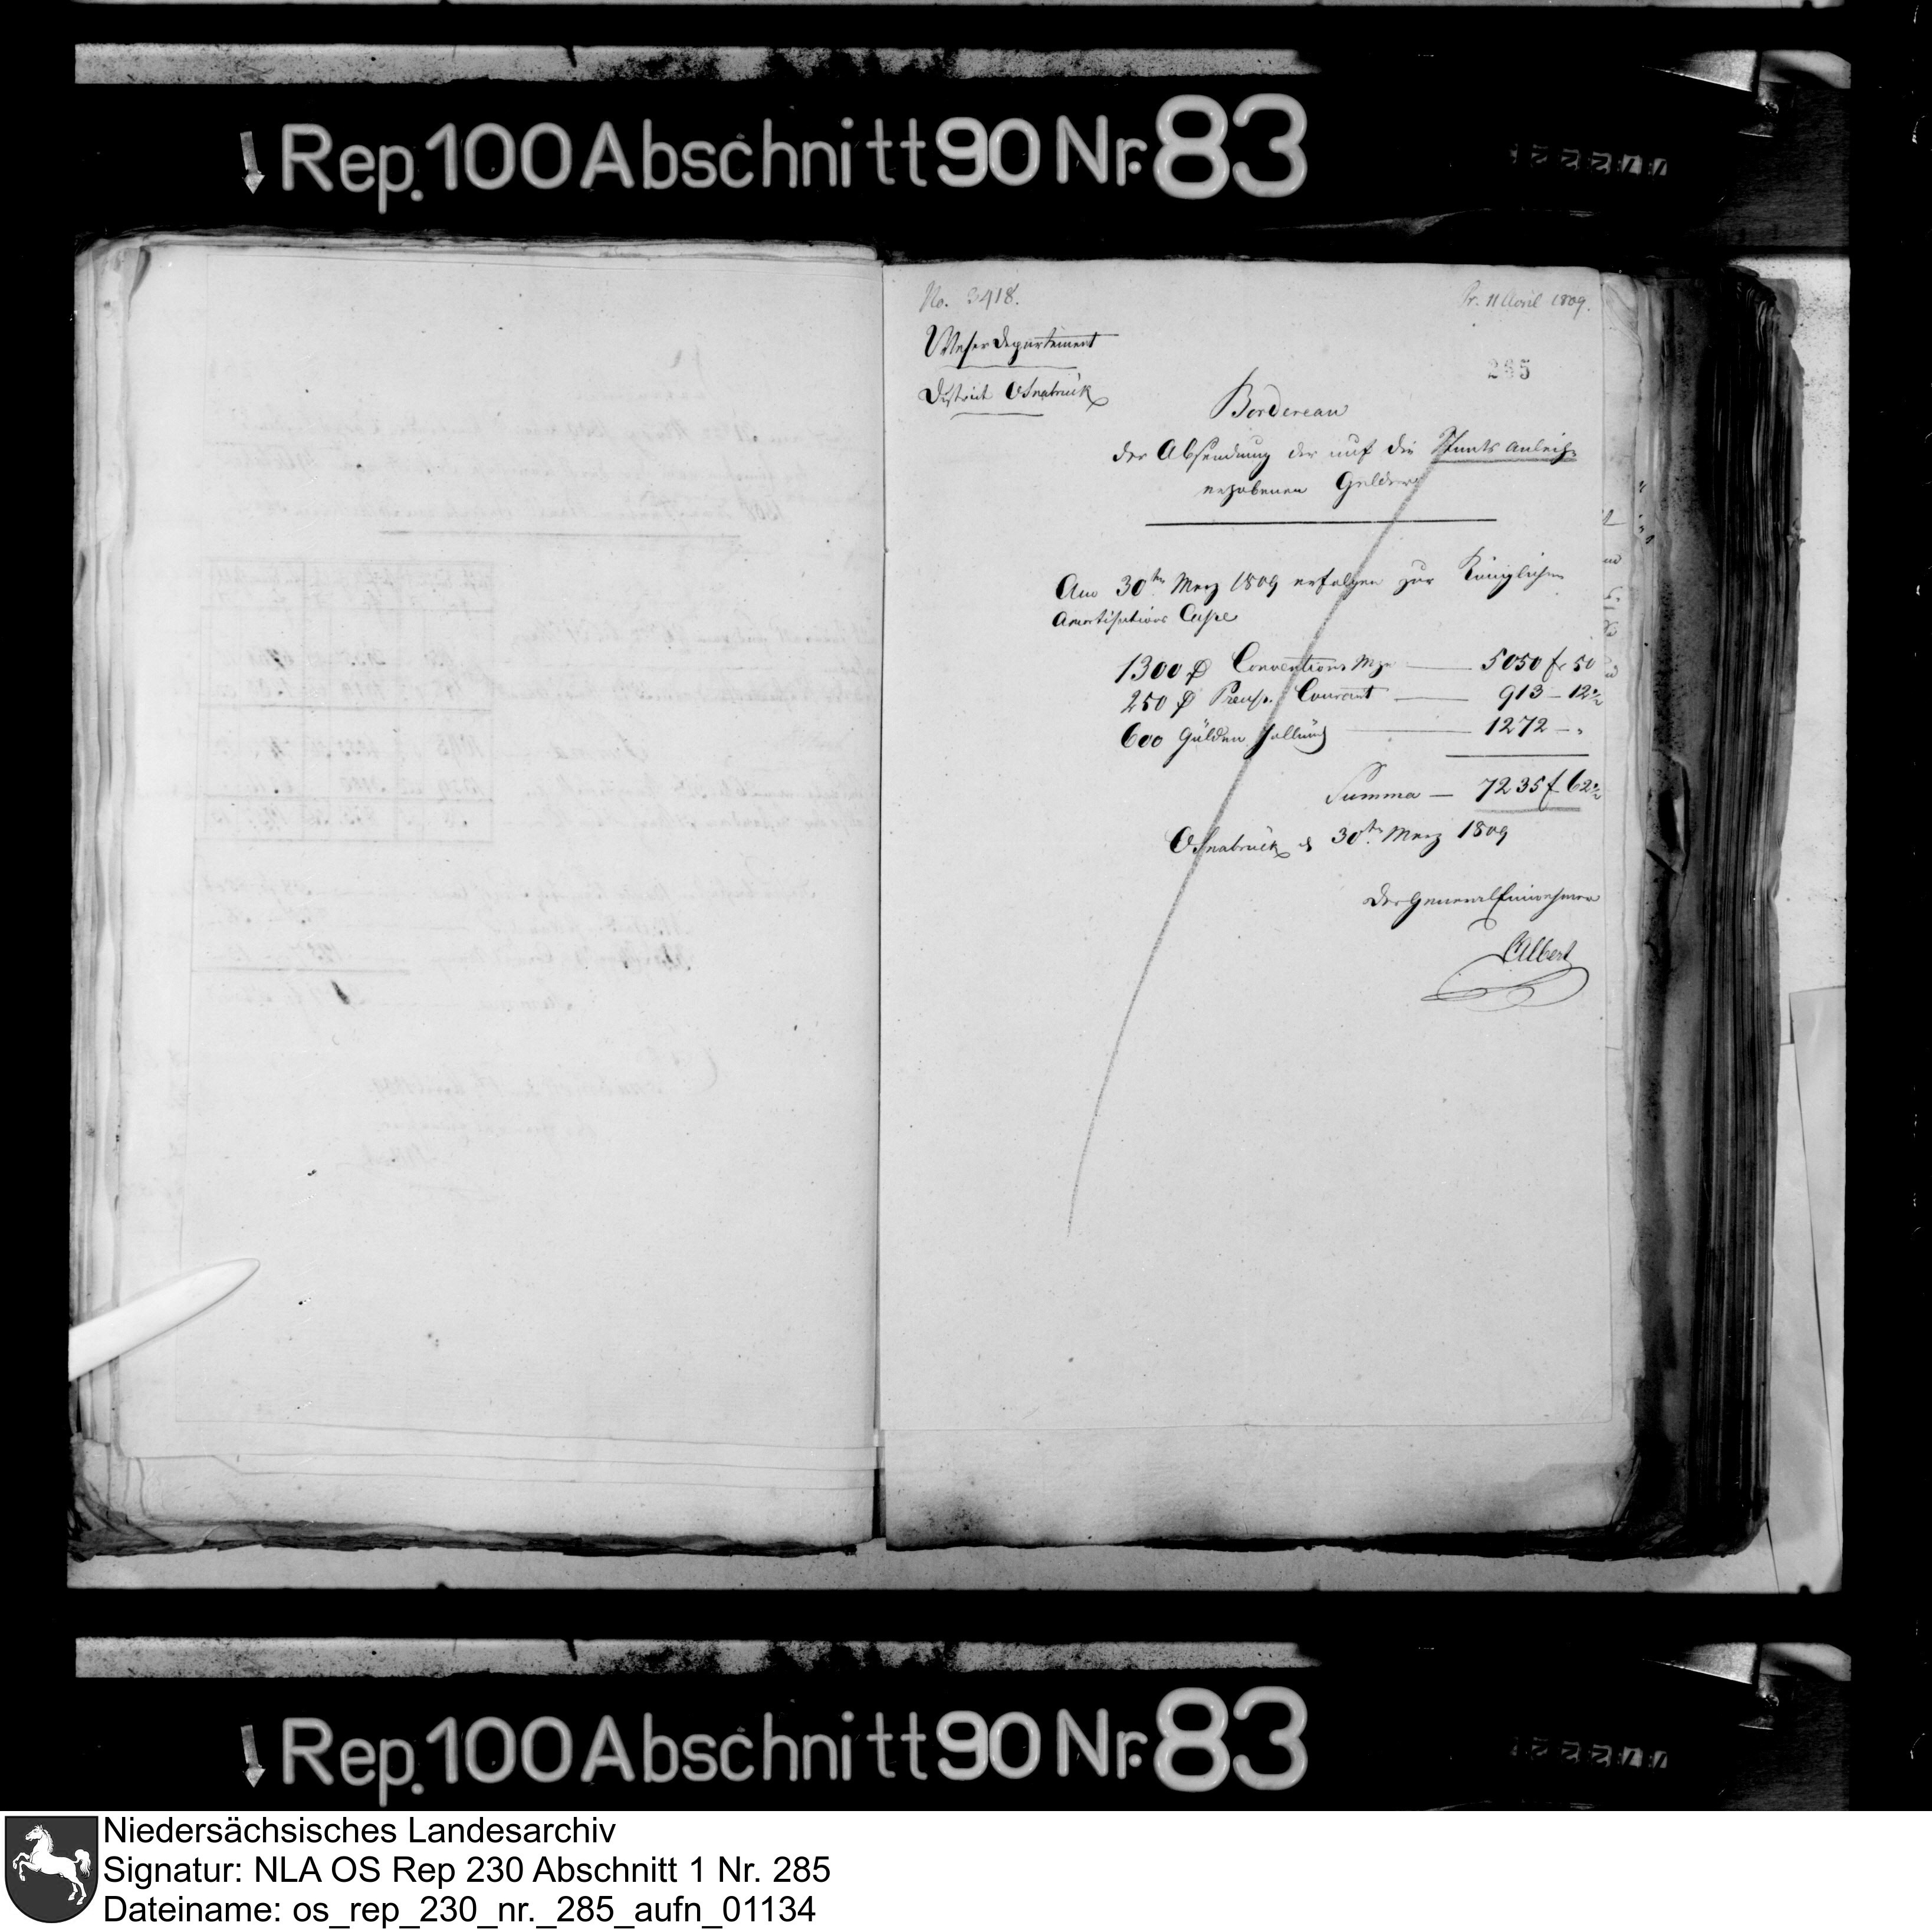 Rep. 100 Abschnitt 90 Nr. 83
No. 3418.
Pr. 11 April 1809.
Weser Departement
265
District Osnabrück
Bordereau
der Absendung der auf die Staats Anleihe
erhobenen Gelder
Am 30ten Merz 1809 erfolgen zur Königlichen
Amortisations Casse
1300 Conventions Mze 5050 fr 50
250 Preuss. Courant 913 - 12 1/2
600 Gülden holländ 1272 -
Summa - 7235 f 62 1/2
Osnabrück d 30ten Merz 1809
Der General Einnehmer
CAlbert
Rep. 100 Abschnitt 90 Nr. 83
Niedersächsisches Landesarchiv
Signatur: NLA OS Rep 230 Abschnitt 1 Nr. 285
Dateiname: os_rep_230_nr._285_aufn_01134